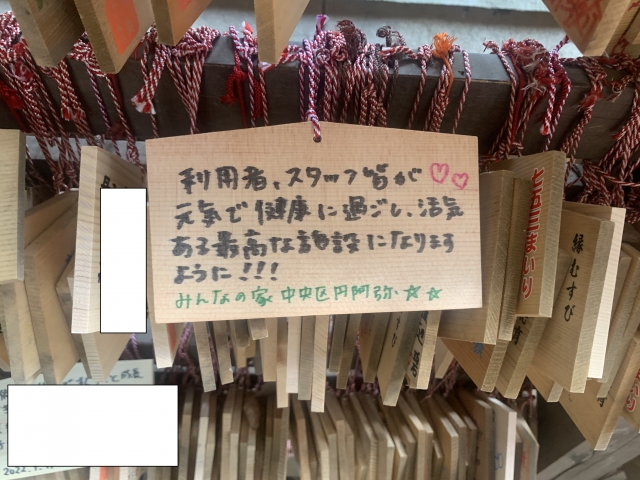 利用者、スタッフ皆が♡♡
元気で健康に過ごし、活気
ある最高な施設になります
ように!!!
みんなの家 中央区円阿弥 ☆☆
七五三まいり
縁むすび